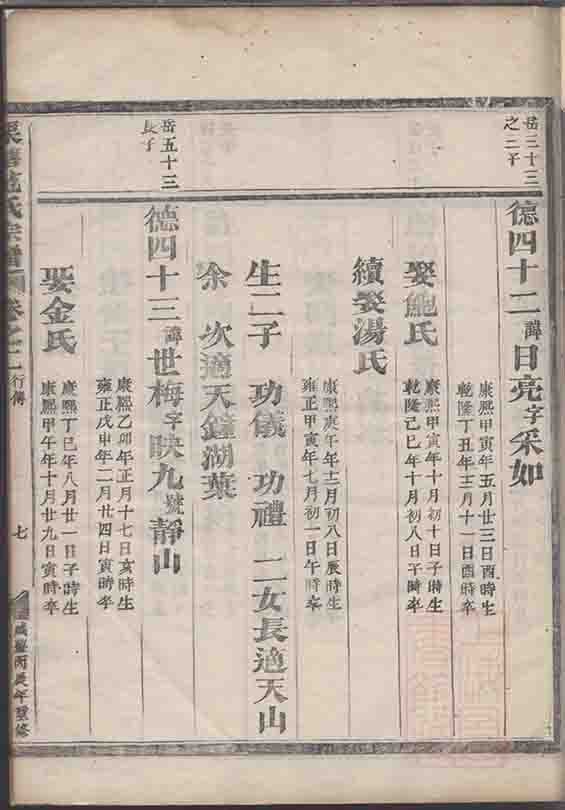 岳三十三
之二子
德四十二諱日亮字采如
康熙甲寅年五月廿三日酉時生
乾隆丁丑年三月十一日酉時卒
娶鮑氏
康熙甲寅年十月初十日子時生
乾隆己巳年十月初八日子時卒
續娶湯氏
康熙庚午年十二月初八日辰時生
雍正甲寅年七月初一日午時卒
生二子 功儀 功禮 二女長適天山
余 次適天鐘湖葉
岳五十三
長子
德四十三諱世梅字映九號靜山
康熙乙卯年正月十七日亥時生
雍正戊申年二月廿四日寅時卒
娶金氏
康熙丁巳年八月廿一日子時生
康熙甲午年十月廿九日寅時卒
氏宗譜 卷之二 行傳 七 咸豐丙辰年重修